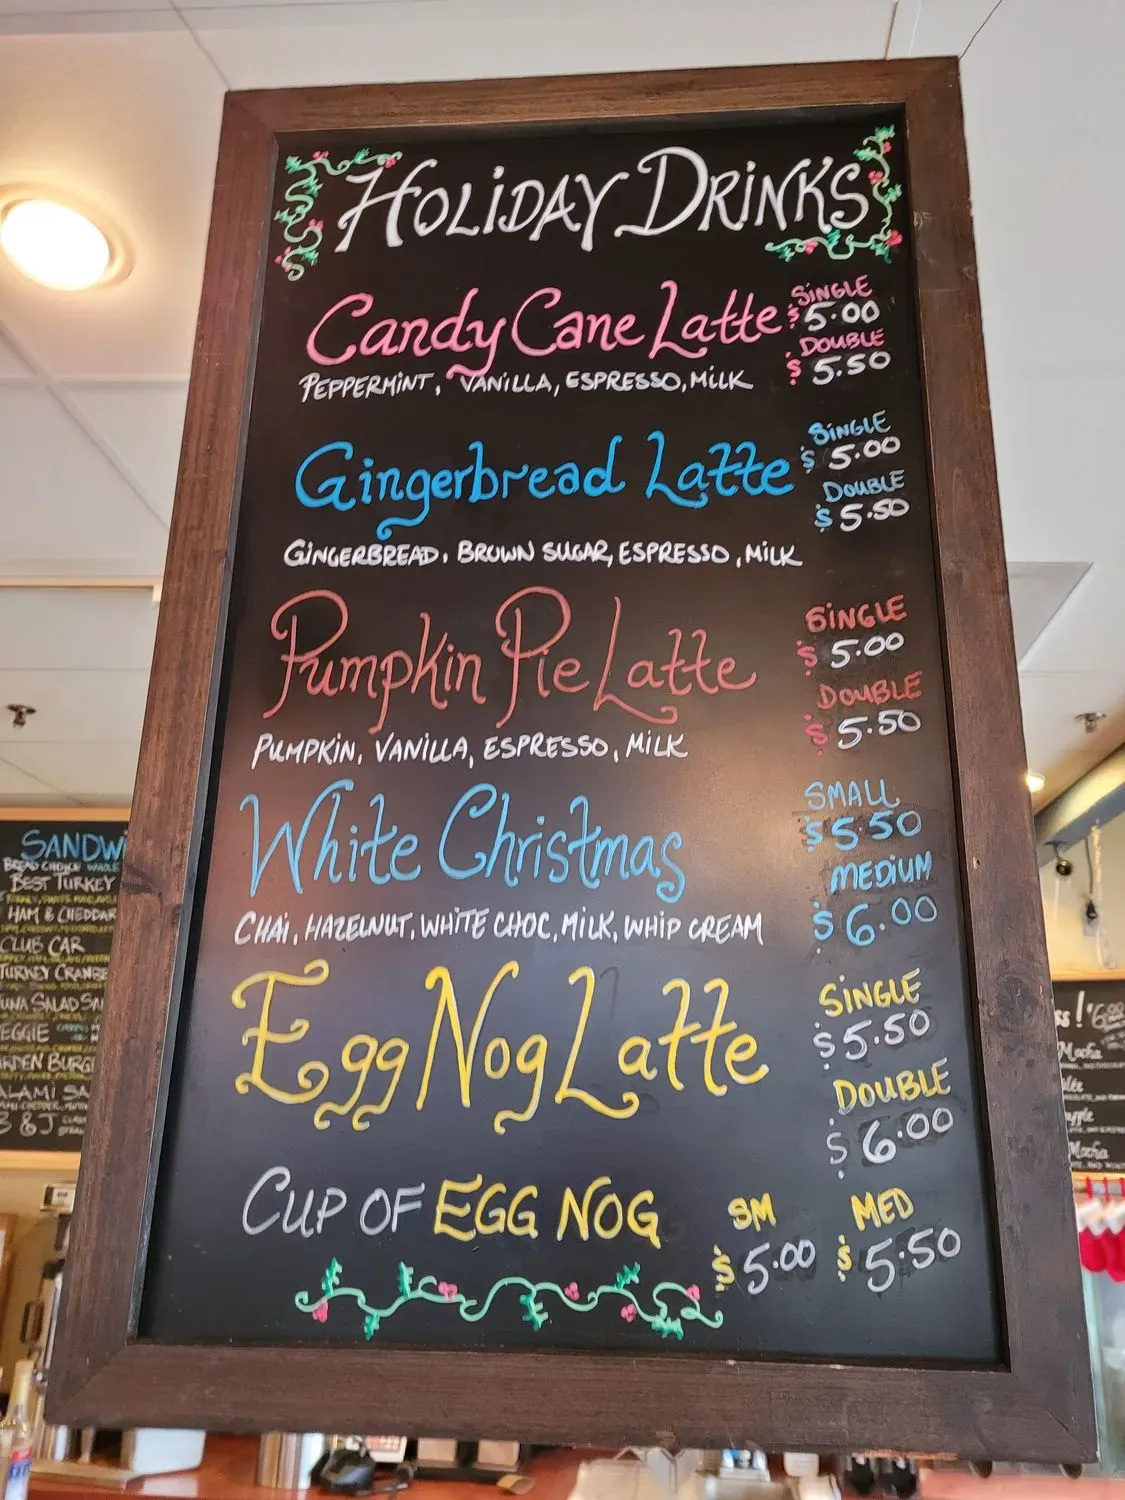 HOLIDAY DRINKS
Candy Cane Latte
SINGLE
$5.00
DOUBLE
$5.50
PEPPERMINT, VANILLA, ESPRESSO, MILK
Gingerbread Latte
SINGLE
$5.00
DOUBLE
$5.50
GINGERBREAD, BROWN SUGAR, ESPRESSO, MILK
Pumpkin Pie Latte
SINGLE
$5.00
DOUBLE
$5.50
PUMPKIN, VANILLA, ESPRESSO, MILK
White Christmas
SMALL
$5.50
MEDIUM
$6.00
CHAI, HAZELNUT, WHITE CHOC, MILK, WHIP CREAM
Egg Nog Latte
SINGLE
$5.50
DOUBLE
$6.00
CUP OF EGG NOG
SM
$5.00
MED
$5.50
SANDWI
BREAD CHOICE
BEST TURKEY
HAM & CHEDDAR
CLUB CAR
TURKEY CRANBE
UNA SALAD SA
EGGIE
RDEN BURG
ALAMI SA
B & J
Mocha
Mocha